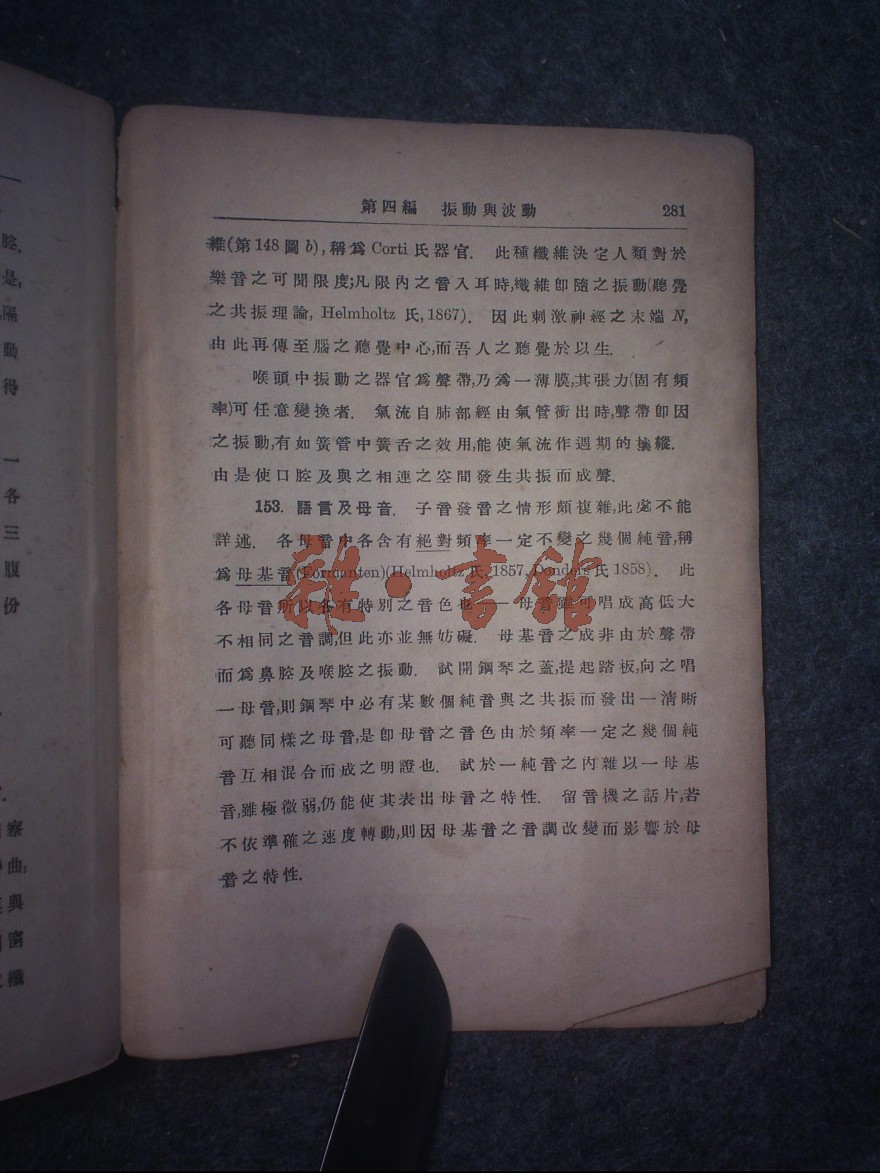 第四編 振動與波動 281
維(第148圖b),稱爲Corti氏器官. 此種纖維決定人類對於
樂音之可聞限度;凡限內之音入耳時,纖維卽隨之振動(聽覺
之共振理論, Helmholtz氏,1867). 因此刺激神經之末端N,
由此再傳至腦之聽覺中心,而吾人之聽覺於以生.
喉頭中振動之器官爲聲帶,乃爲一薄膜,其張力(固有頻
率)可任意變換者. 氣流自肺部經由氣管衝出時,聲帶卽因
之振動,有如簧管中簧舌之效用,能使氣流作週期的操縱.
由是使口腔及與之相連之空間發生共振而成聲.
153. 語言及母音. 子音發音之情形頗複雜,此處不能
詳述. 各母音中各含有絕對頻率一定不變之幾個純音,稱
爲母基音(Formanten)(Helmholtz氏,1857,Donders氏1858). 此
各母音所以各有特別之音色也. 一母音雖可唱成高低大
不相同之音調,但此亦並無妨礙. 母基音之成非由於聲帶
而爲鼻腔及喉腔之振動. 試開鋼琴之蓋,提起踏板,向之唱
一母音,則鋼琴中必有某數個純音與之共振而發出一清晰
可聽同樣之母音,是卽母音之音色由於頻率一定之幾個純
音互相混合而成之明證也. 試於一純音之內雜以一母基
音,雖極微弱,仍能使其表出母音之特性. 留音機之話片,若
不依準確之速度轉動,則因母基音之音調改變而影響於母
音之特性.
雜·書館
腔.
是,
隔
動
得
一
各
三
腹
份
察
曲,
與
纖